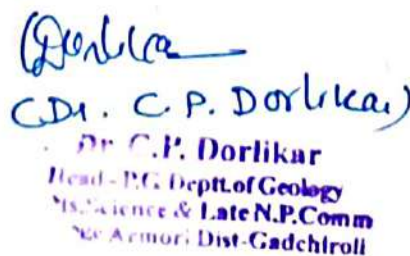 Dorlikar
(Dr. C. P. Dorlikar)
Dr. C.P. Dorlikar
Head - P.G. Deptt.of Geology
Science & Late N.P.Comm
Armori Dist-Gadchiroli